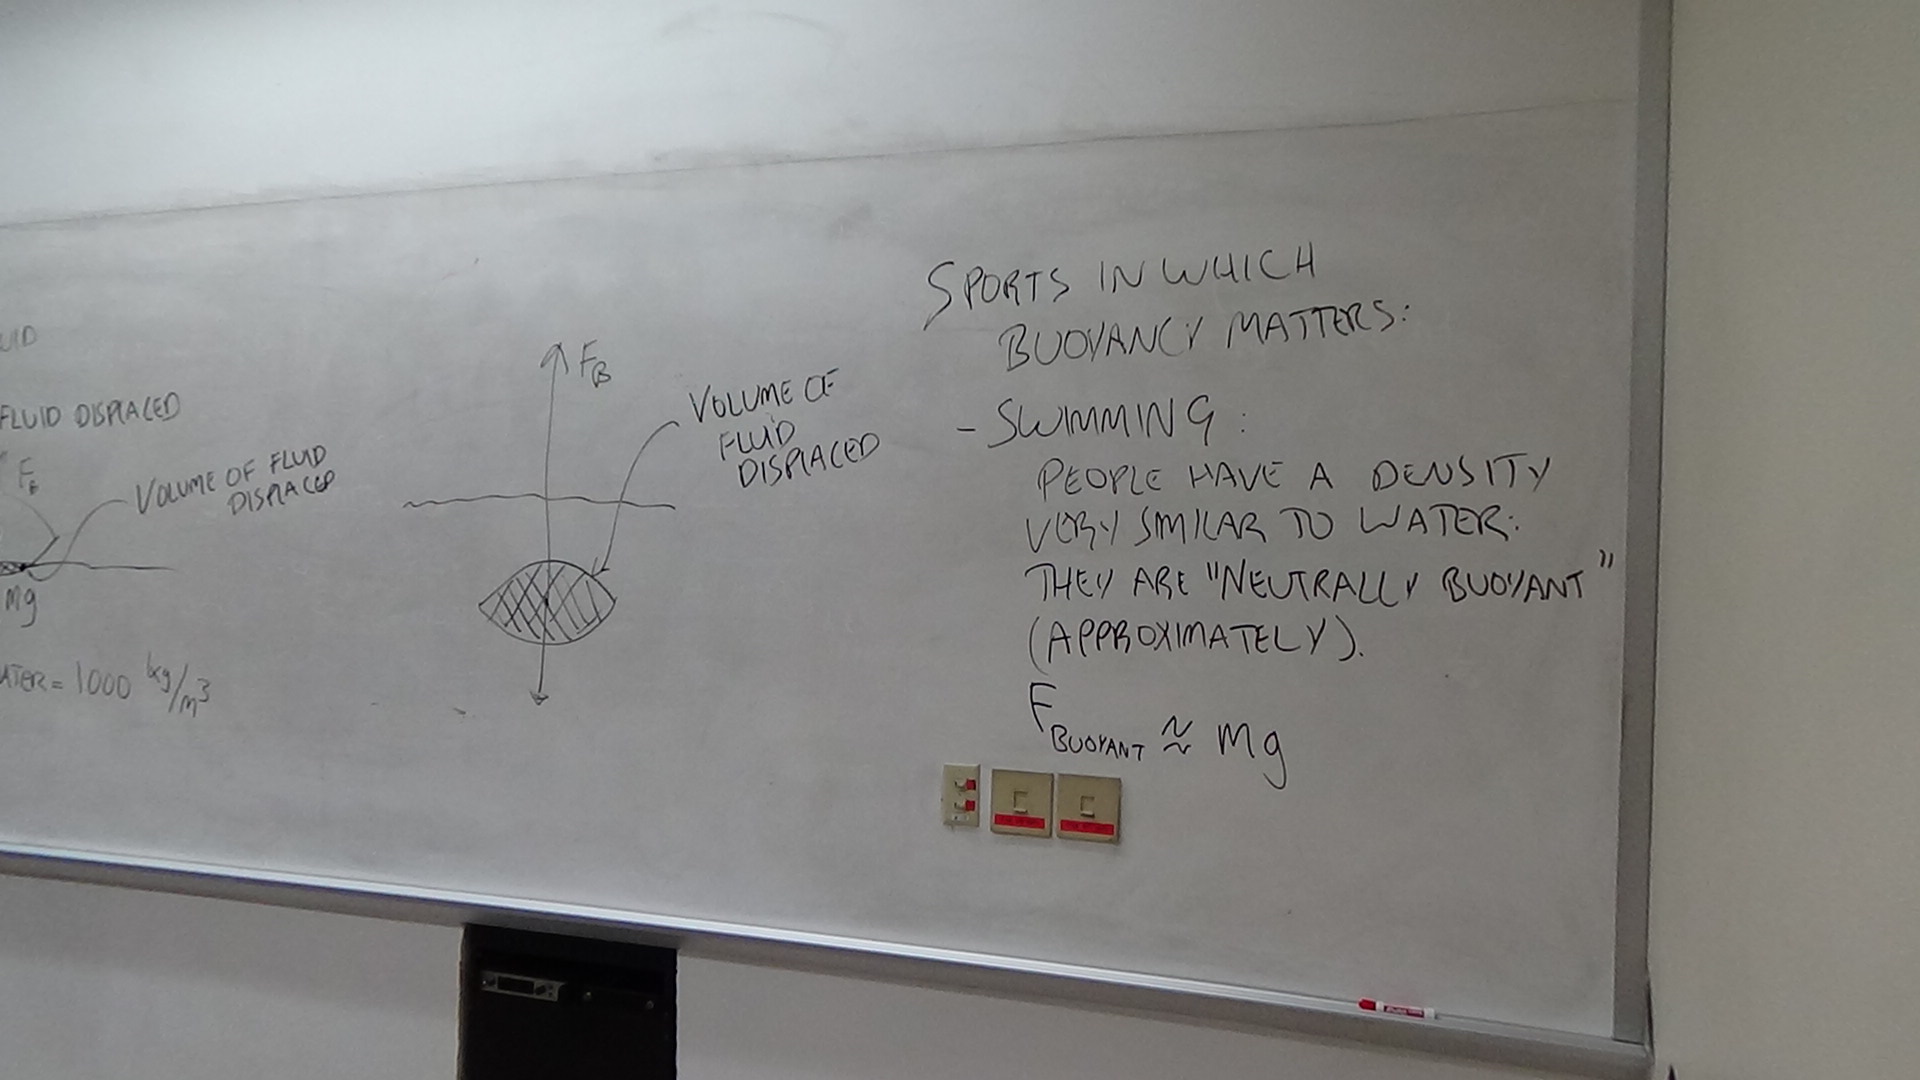 UID
FLUID DISPLACED
FB
VOLUME OF FLUID
DISPLACED
mg
ATER = 1000 kg/m3
FB
VOLUME OF
FLUID
DISPLACED
SPORTS IN WHICH
BUOYANCY MATTERS:
- SWIMMING:
PEOPLE HAVE A DENSITY
VERY SIMILAR TO WATER.
THEY ARE "NEUTRALLY BUOYANT"
(APPROXIMATELY).
FBUOYANT ≈ mg